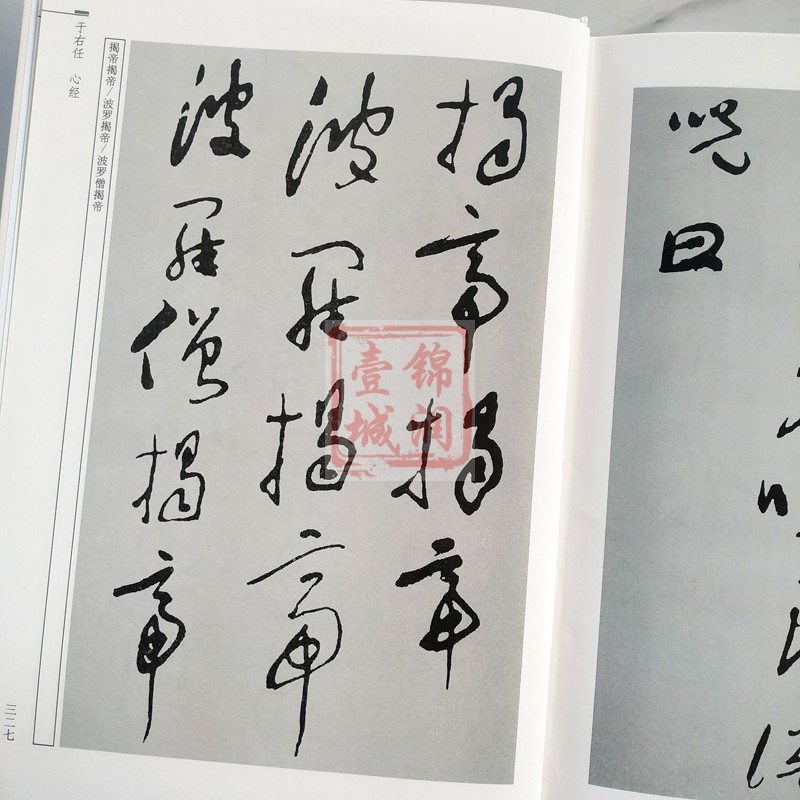 呪曰
揭帝揭帝
波罗揭帝
波罗僧揭帝
揭帝揭帝/波罗揭帝/波罗僧揭帝
于右任 心经
三二七
锦润
壹城